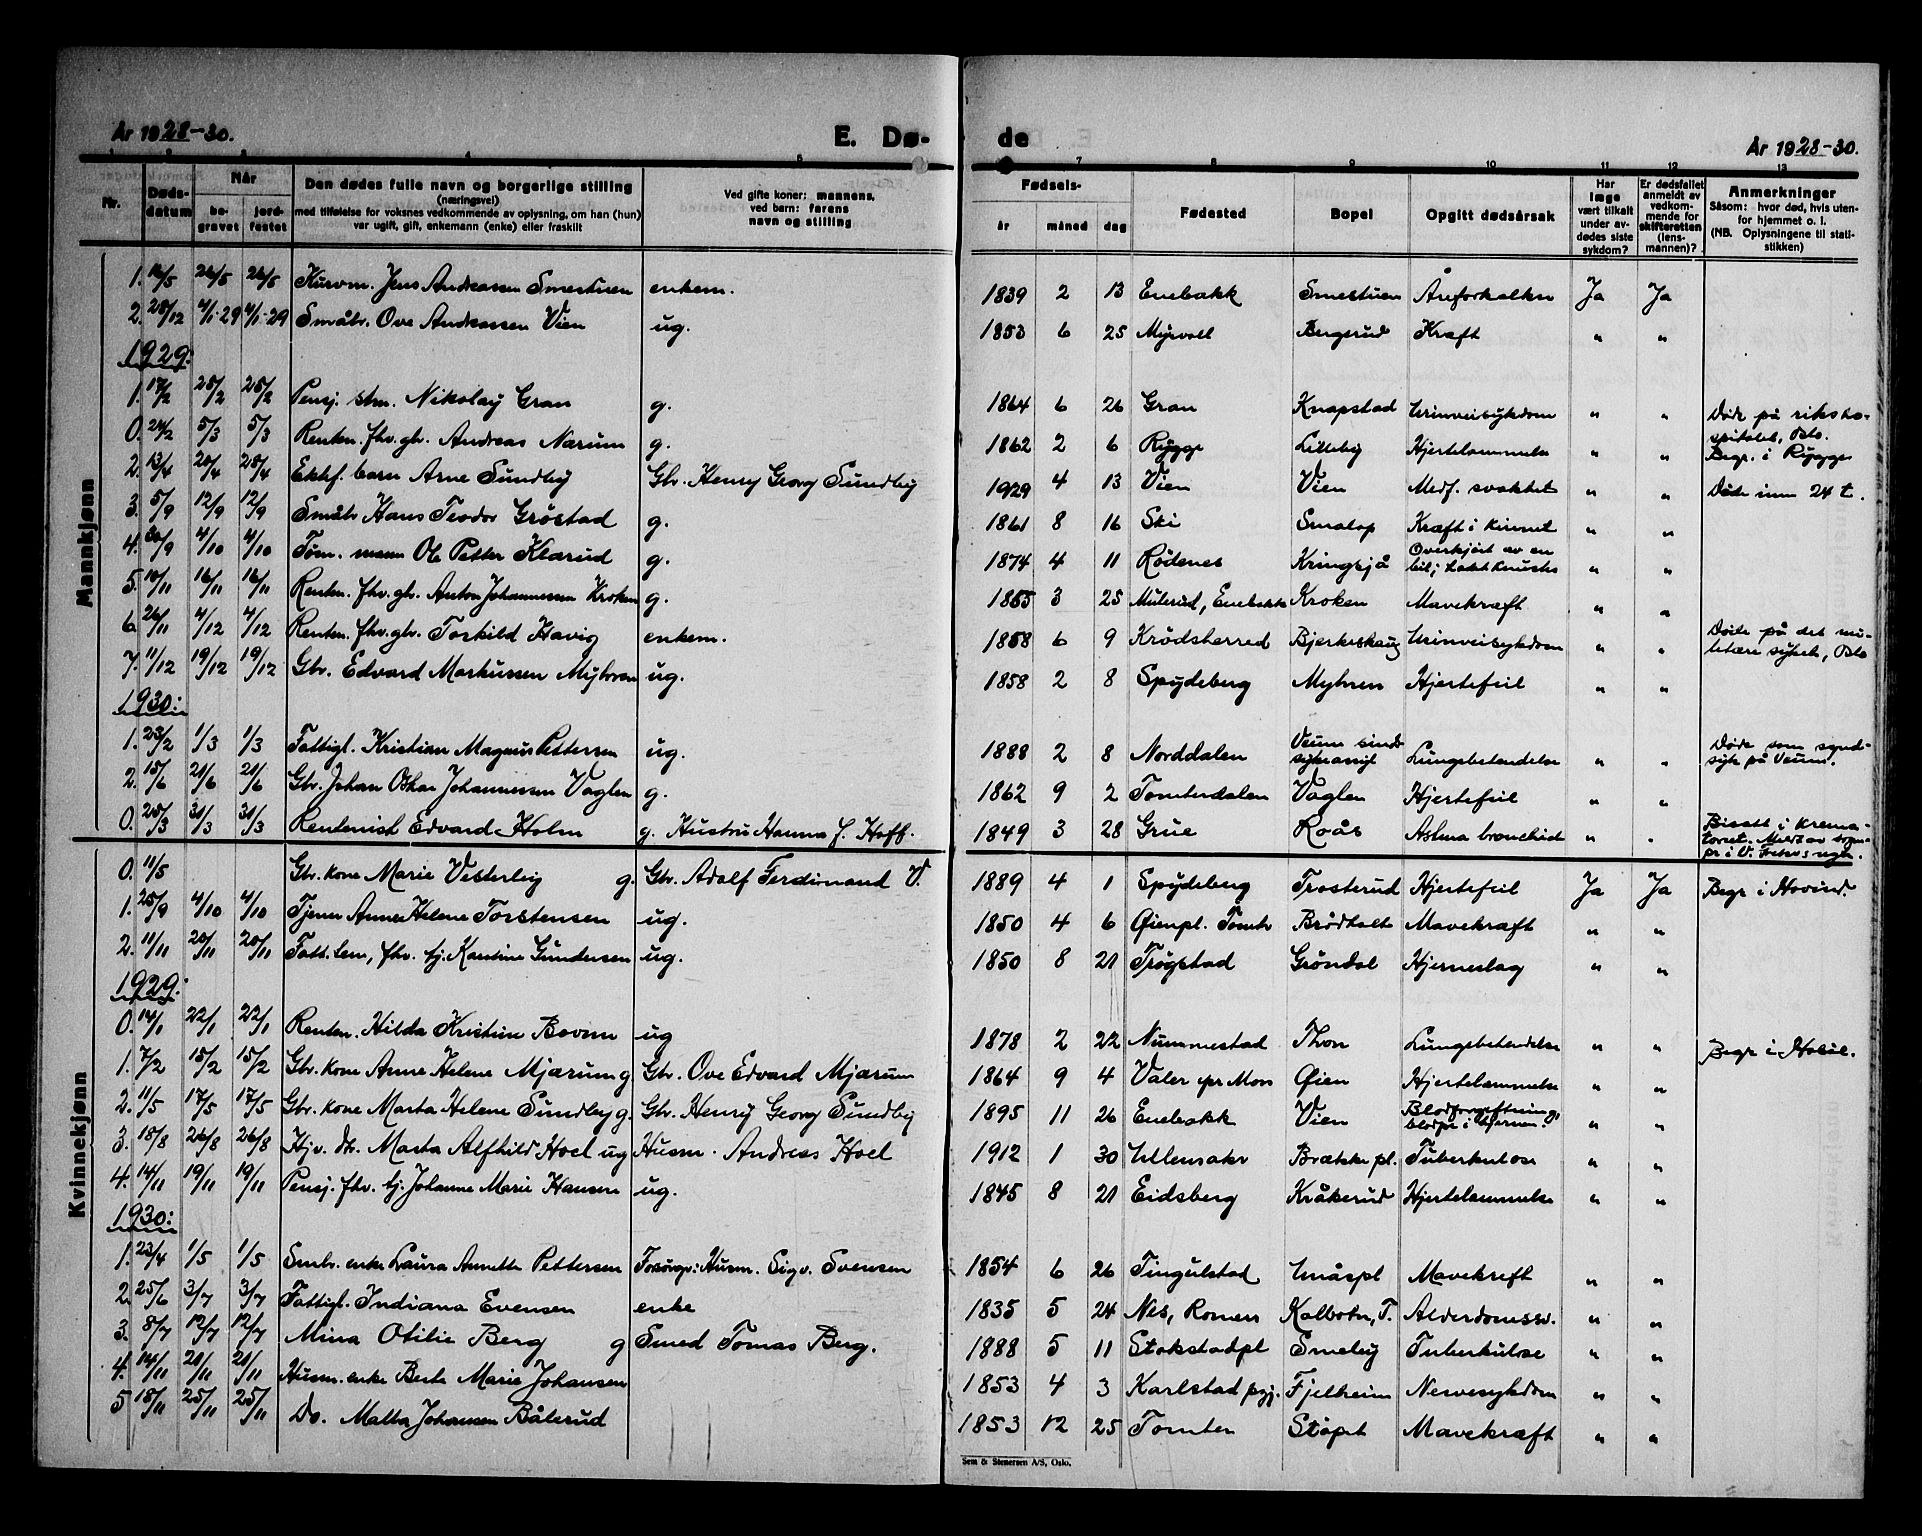 År 1928-30.
E. Dø-
de
År 1928-30.
1 2 3 4 5
7 8 9 10 11 12 13
Nr.
Døds-
datum
Når
be-
gravet
jord-
festet
Den dødes fulle navn og borgerlige stilling
(næringsvei)
med tilføielse for voksnes vedkommende av oplysning, om han (hun)
var ugift, gift, enkemann (enke) eller fraskilt
Ved gifte koner: mannens,
ved barn: farens
navn og stilling
Fødsels-
år måned dag
Fødested
Bopel
Opgitt dødsårsak
Har
læge
vært tilkalt
under av-
dødes siste
sykdom?
Er dødsfallet
anmeldt av
vedkom-
mende for
skifteretten
(lens-
mannen)?
Anmerkninger
Såsom: hvor død, hvis uten-
for hjemmet o. l.
(NB. Oplysningene til stati-
stikken)
Mannkjønn
1. 16/5 26/5 26/5 Kurvm. Jens Andreassen Smestuen enkem. 1839 2 13 Enebakk Smestuen Åreforkalkn Ja Ja
2. 28/12 4/1-29 4/1-29 Småbr. Ove Andreassen Vien ug. 1853 6 25 Myrvoll Bergerud Kræft " "
1929:
1. 17/2 25/2 25/2 Pensj. stm. Nikolay Gran g. 1864 6 26 Gran Knapstad Urinveisykdom " " Døde på riksho-
spitalet, Oslo.
0. 24/2 5/3 5/3 Renten. fhv. gbr. Andreas Narum g. 1862 2 6 Rygge Lilleby Hjertelammelse " " Begr. i Rygge
2. 13/4 20/4 28/4 Ektef. barn Arne Sundby Gbr. Henry Georg Sundby 1929 4 13 Vien Vien Medf. svakhet " " Døde inn 24 t.
3. 5/9 12/9 12/9 Småbr Hans Teodor Grøstad g. 1861 8 16 Ski Smalop Kræft i kinnet " "
4. 30/9 4/10 4/10 Tøm. mann Ole Petter Klarud g. 1874 4 11 Rødenes Kringsjå Overkjørt av en
bil; " "
5. 10/11 16/11 16/11 Renten. fhv. gbr. Anton Johannessen Kroken g. 1855 3 25 Mulerud, Enebakk Kroken Mavekræft " "
6. 26/11 4/12 4/12 Renten. fhv. gbr. Torkild Havig enkem. 1858 6 9 Krødsherred Bjerkeskaug Urinveisykdom " " Døde på det mi-
litære sykeh, Oslo
7. 11/12 19/12 19/12 Gbr. Edvard Markussen Myhren ug. 1858 2 8 Spydeberg Myhren Hjertefeil " "
1930:
1. 23/2 1/3 1/3 Fattigl. Kristian Magnus Pettersen ug. 1888 2 8 Norddalen Veum sinds
sykeasyl Lungebetendelse " " Døde som synd-
syk på Veum.
2. 15/6 21/6 21/6 Gbr. Johan Oskar Johannessen Vaglen g. 1862 9 2 Tomterdalen Vaglen Hjertefeil " "
0. 25/3 31/3 31/3 Rentenist Edvard Holm g. Hustru Hanna f. Hoff. 1849 3 28 Grue Roås Astma bronchial " " Bisatt i krema-
toriet.
Kvinnekjønn
0. 11/5 Gbr. kone Marie Vesterleig g. Gbr. Adolf Ferdinand V. 1889 4 1 Spydeberg Trosterud Hjertefeil Ja Ja Begr. i Hovind.
1. 25/9 4/10 4/10 Tjener Anne Helene Torstensen ug. 1850 4 6 Øienpl. Tomter Brødholt Mavekræft " "
2. 11/11 20/11 20/11 Fatt. lem, fhv. tj. Karoline Gundersen ug. 1850 8 21 Trøgstad Grøndal Hjerneslag " "
1929:
0. 14/1 22/1 22/1 Renten. Hilda Kristine Bovim ug 1878 2 22 Nummestad Thon Lungebetendelse " " Begr i Hobøl.
1. 7/2 15/2 15/2 Gbr. kone Anne Helene Mjærum g Gbr. Ove Edvard Mjærum 1864 9 4 Våler pr Mon Øien Hjertelammelse " "
2. 11/5 17/5 17/5 Gbr. kone Marta Helene Sundby g. Gbr. Henry Georg Sundby 1895 11 26 Enebakk Vien Blodforgiftning,
blodpr i hjernen. " "
3. 18/8 26/8 26/8 Hjv. dtr. Marta Alfhild Hoel ug Husm. Andreas Hoel 1912 1 30 Ullensaker Brække pl. Tuberkulose " "
4. 14/11 19/11 19/11 Pensj. fhv. tj. Johanne Marie Hansen ug. 1845 8 21 Eidsberg Kråkerud Hjertelammelse " "
1930:
1. 23/4 1/5 1/5 Smbr. enke Laura Annette Pettersen Forsørg.: Husm. Sigv. Svensen 1854 6 26 Tingulstad Småspl Mavekreft " "
2. 25/6 3/7 3/7 Fattigl. Indiana Evensen enke 1835 5 24 Nes, Romer. Kolbotn, T. Alderdomssv. " "
3. 8/7 12/7 12/7 Mina Otilie Berg g Smed Tomas Berg. 1888 5 11 Stokstadpl Smeby Tuberkulose " "
4. 14/11 20/11 21/11 Husm. enke Berte Marie Johansen 1853 4 3 Karlstad pgj. Fjelheim Nervesykdom " "
5 18/11 25/11 25/11 Do. Malla Johansen Bålerud 1853 12 25 Tomter Støpet Mavekræft " "
Sem & Stenersen A/S, Oslo.